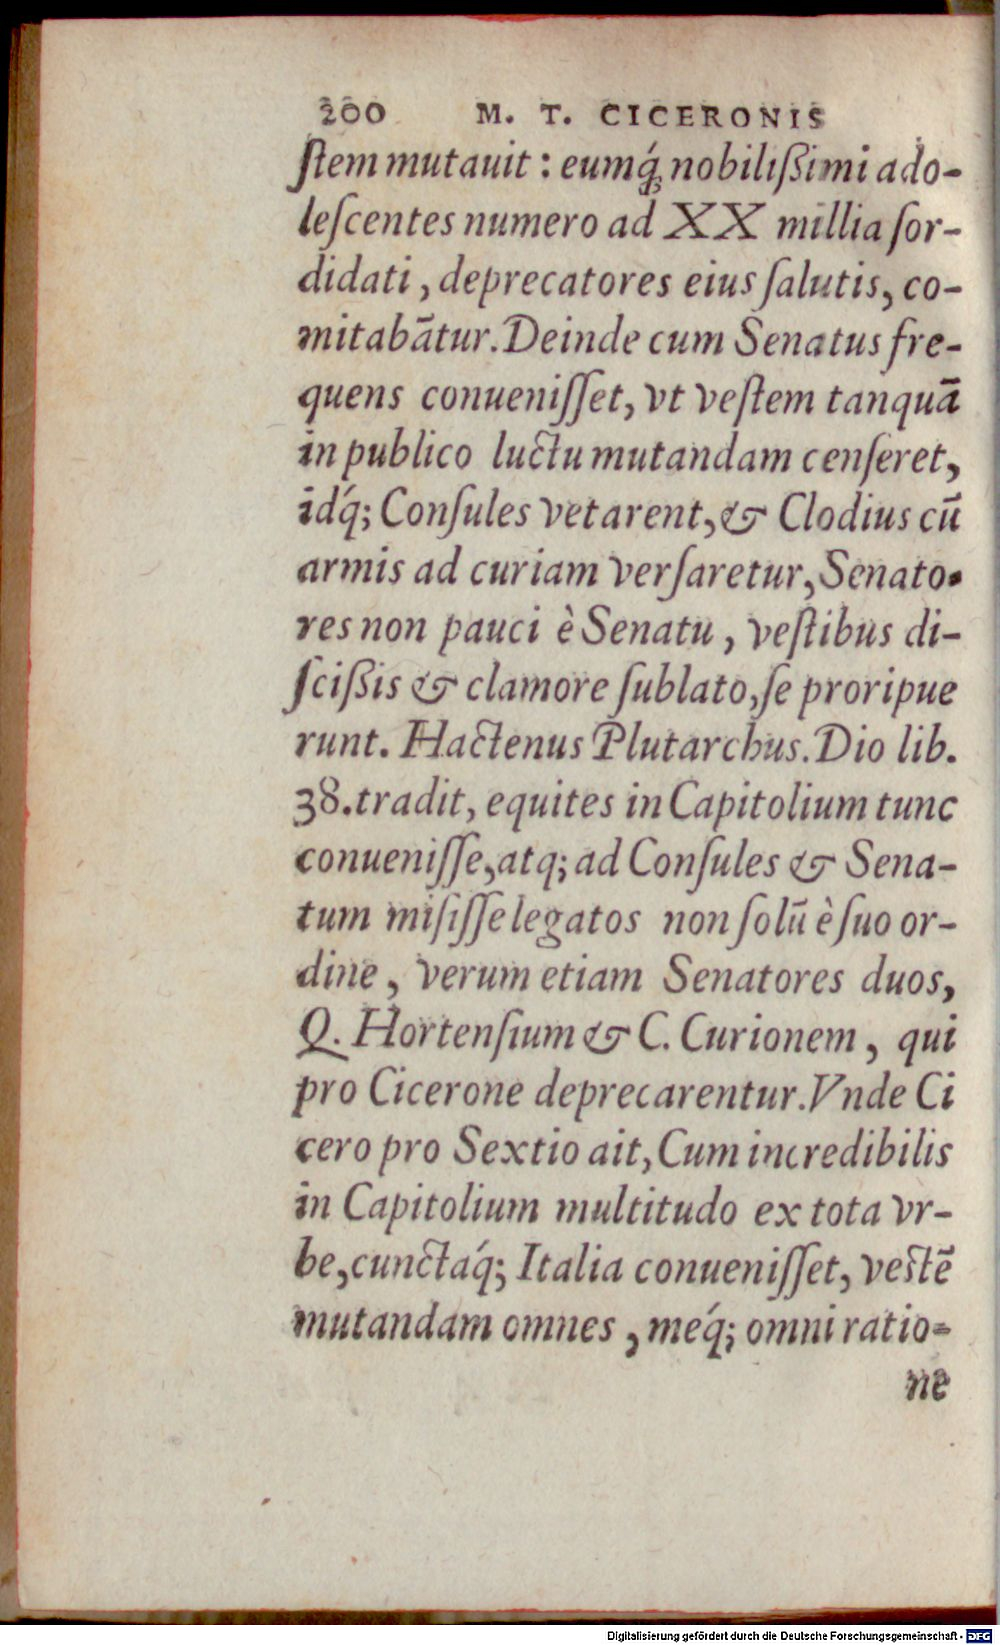 200 M. T. CICERONIS
ſtem mutauit : eumq́; nobilißimi ado-
leſcentes numero ad XX millia ſor-
didati, deprecatores eius ſalutis, co-
mitabātur. Deinde cum Senatus fre-
quens conueniſſet, vt veſtem tanquā
in publico luctu mutandam cenſeret,
idq́; Conſules vetarent, & Clodius cū
armis ad curiam verſaretur, Senato-
res non pauci è Senatu, veſtibus di-
ſcißis & clamore ſublato, ſe proripue
runt. Hactenus Plutarchus. Dio lib.
38. tradit, equites in Capitolium tunc
conueniſſe, atq; ad Conſules & Sena-
tum miſiſſe legatos non ſolū è ſuo or-
dine, verum etiam Senatores duos,
Q. Hortenſium & C. Curionem, qui
pro Cicerone deprecarentur. Vnde Ci
cero pro Sextio ait, Cum incredibilis
in Capitolium multitudo ex tota vr-
be, cunctaq́; Italia conueniſſet, veſtē
mutandam omnes, meq́; omni ratio-
ne
Digitalisierung gefördert durch die Deutsche Forschungsgemeinschaft - DFG